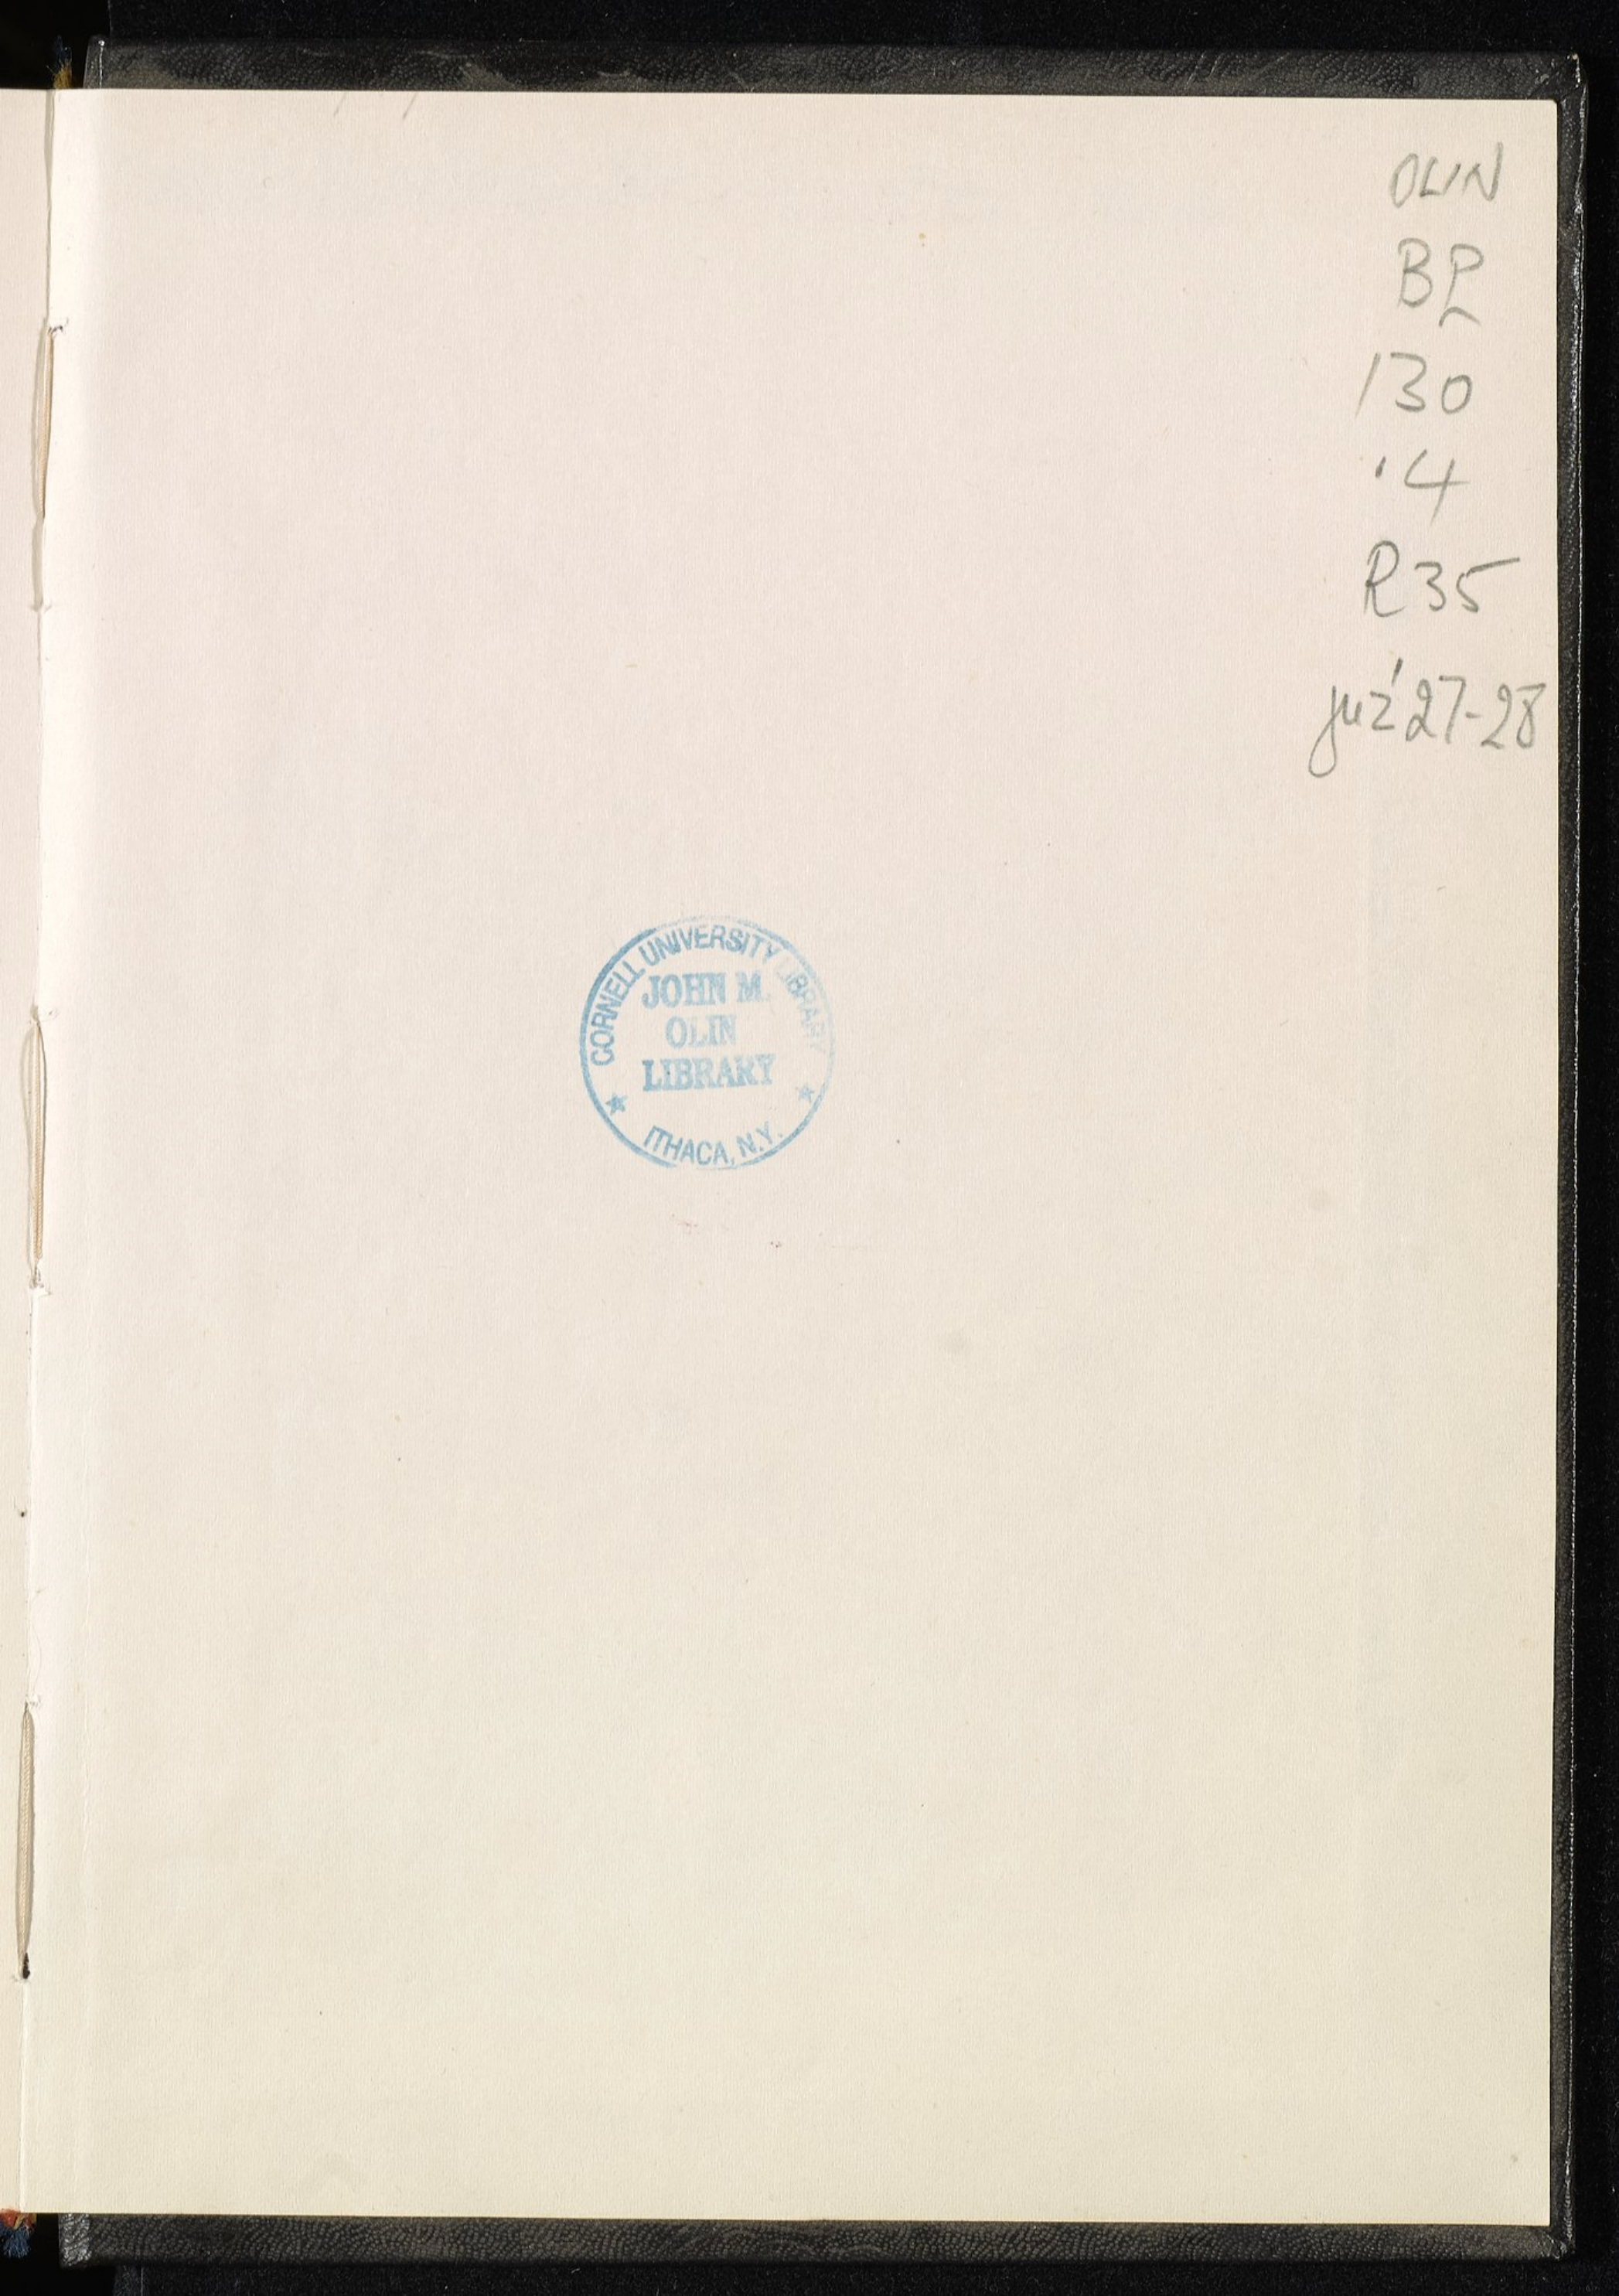 OLIN
BP
130
.4
R35
juz' 27-28
CORNELL UNIVERSITY LIBRARY
JOHN M.
OLIN
LIBRARY
ITHACA, N.Y.